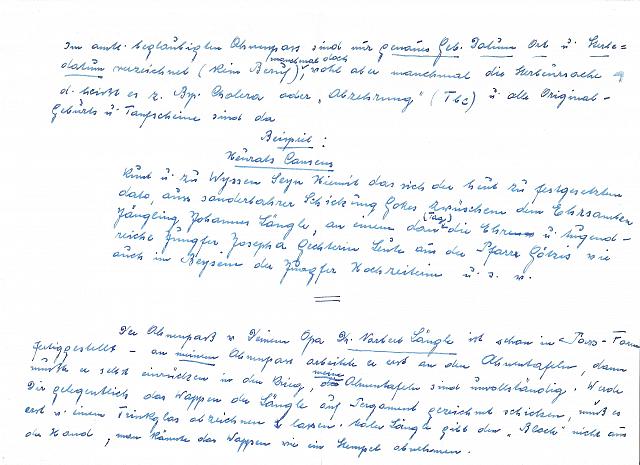 Im amtl. beglaubigten Ahnenpass sind nur genaues Geb. Datum Ort u. Sterbe=
datum verzeichnet (kein Beruf), manchmal doch wohl aber manchmal die Sterbeursache
d. heißt es z. Bsp. Cholera oder „Abzehrung" (Tbc) u. alle Original-
Geburts u. Taufscheine sind da
Beispiel:
Heurats Consens
Kund u. zu Wyssen Seye Hiemit das sich der heut zu festgesetzten
dato, auss sonderbahrer Schickung Gotes zwüschen dem Ehrsamber
Jüngling Johannes Längle, an einem (Tag) die Ehr u. tugend-
reiche Jungfer Josepha aus der Pfarr Götzis wie
auch in Beysein der Jungfer Hochzeiterin u. s. w.
Der Ahnenpaß v. Deinem Opa Norbert Längle ist schon in Pass-Form
fertiggestellt – an meinem Ahnenpass arbeitete er erst an den Ahnentafeln, dann
mußte er selbst einrücken in den Krieg, meine Ahnentafeln sind unvollständig. Werde
Dir gelegentlich das Wappen der Längle auf Pergament gezeichnet schicken, muß es
erst v. einem Trinkglas abzeichnen lassen. Längle gibt den „Block" nicht aus
der Hand, man könnte das Wappen wie ein Stempel abnehmen.